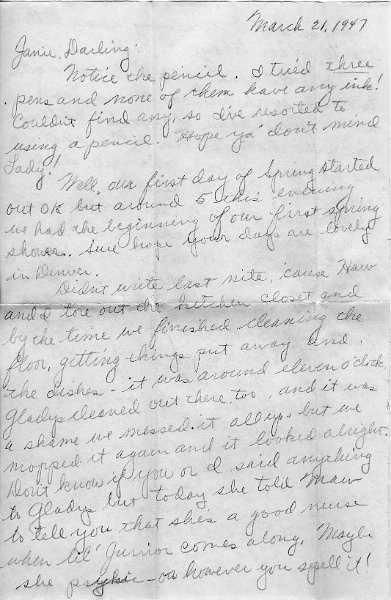 March 21, 1947
Janie, Darling:
Notice the pencil. I tried three
pens and none of them have any ink!
Couldn't find any, so I've resorted to
using a pencil. Hope ya' don't mind
Lady!
Well, our first day of Spring started
out OK but around 5 this evening
we had the beginning of our first spring
shower. Sure hope your days are lovely
in Denver.
Didn't write last nite, 'cause Maw
and I tore out the kitchen closet and
by the time we finished cleaning the
floor, getting things put away and
the dishes - it was around eleven o'clock.
Gladys cleaned out there too, and it was
a shame we messed it all up but we
mopped it again and it looked alright.
Don't know if you or I said anything
to Gladys but today she told Maw
to tell you that she's a good nurse
when lil' Junior comes along. Maybe
she - or however you spell it!